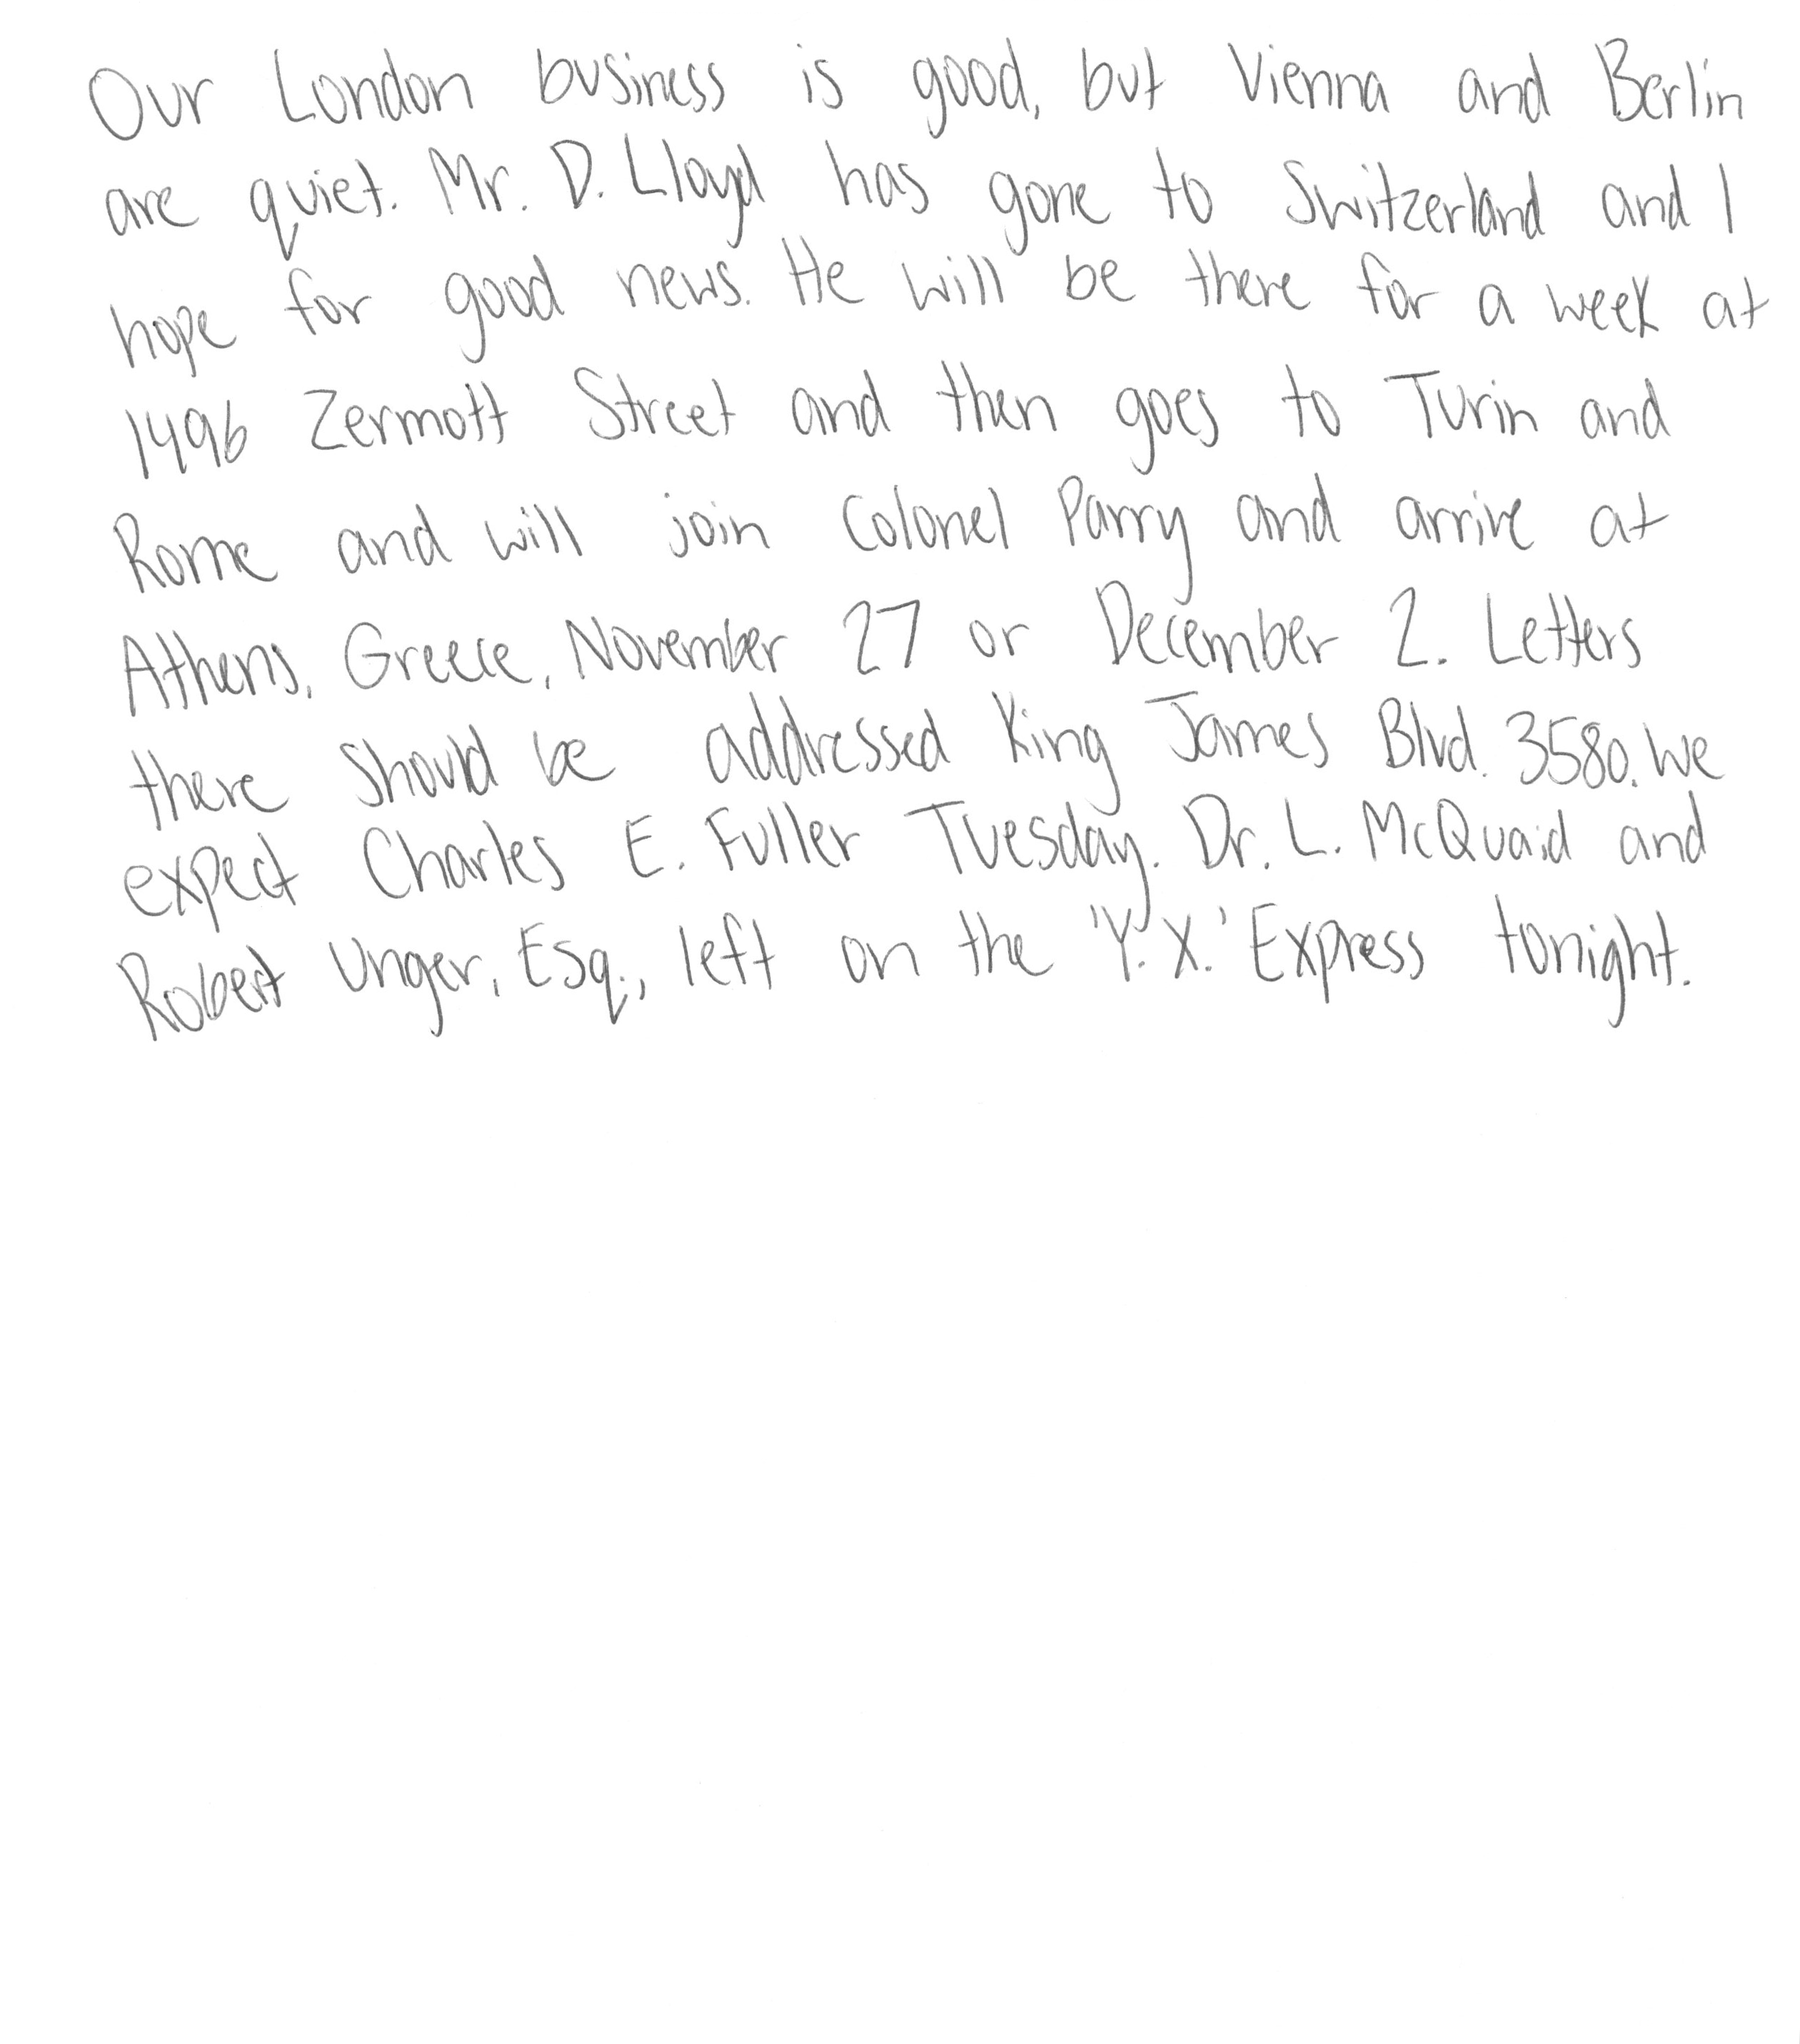 Our London business is good, but Vienna and Berlin
are quiet. Mr. D. Lloyd has gone to Switzerland and I
hope for good news. He will be there for a week at
1496 Zermott Street and then goes to Turin and
Rome and will join Colonel Parry and arrive at
Athens, Greece, November 27 or December 2. Letters
there should be addressed King James Blvd. 3580. We
expect Charles E. Fuller Tuesday. Dr. L. McQuaid and
Robert Unger, Esq., left on the 'Y.X.' Express tonight.